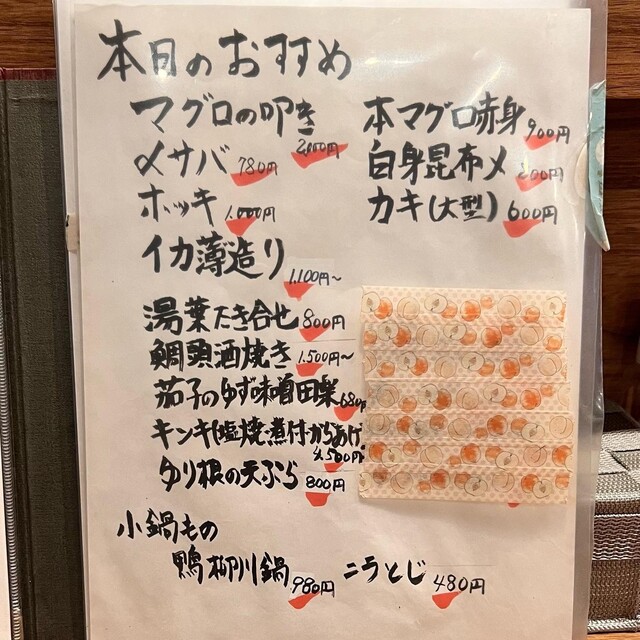 本日のおすすめ
マグロの叩き 2,800円
〆サバ 780円
ホッキ 1,000円
イカ薄造り 1,100円~
本マグロ赤身 900円
白身昆布〆 800円
カキ(大型) 600円
湯葉たき合せ 800円
鯛頭酒焼き 1,500円~
茄子のゆず味噌田楽 680円
キンキ(塩焼・煮付・からあげ) 4,500円
ゆり根の天ぷら 800円
小鍋もの
鴨柳川鍋 980円 ニラとじ 480円